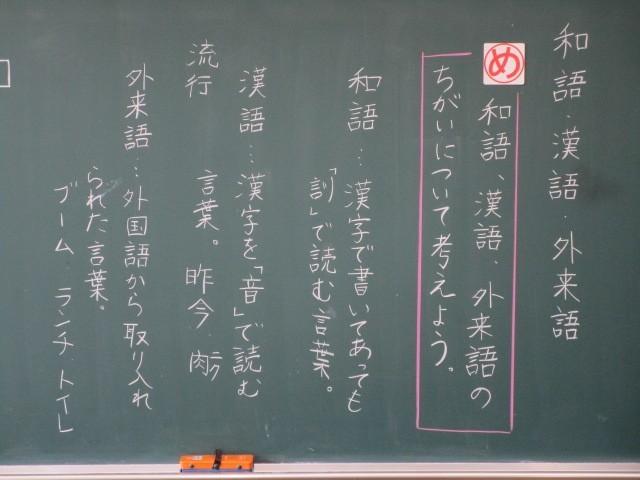 和語・漢語・外来語
め
和語、漢語、外来語の
ちがいについて考えよう。
和語…漢字で書いてあっても
「訓」で読む言葉。
漢語…漢字を「音」で読む
流行 言葉。昨今
外来語…外国語から取り入れ
られた言葉。
ブーム ランチ トイレ